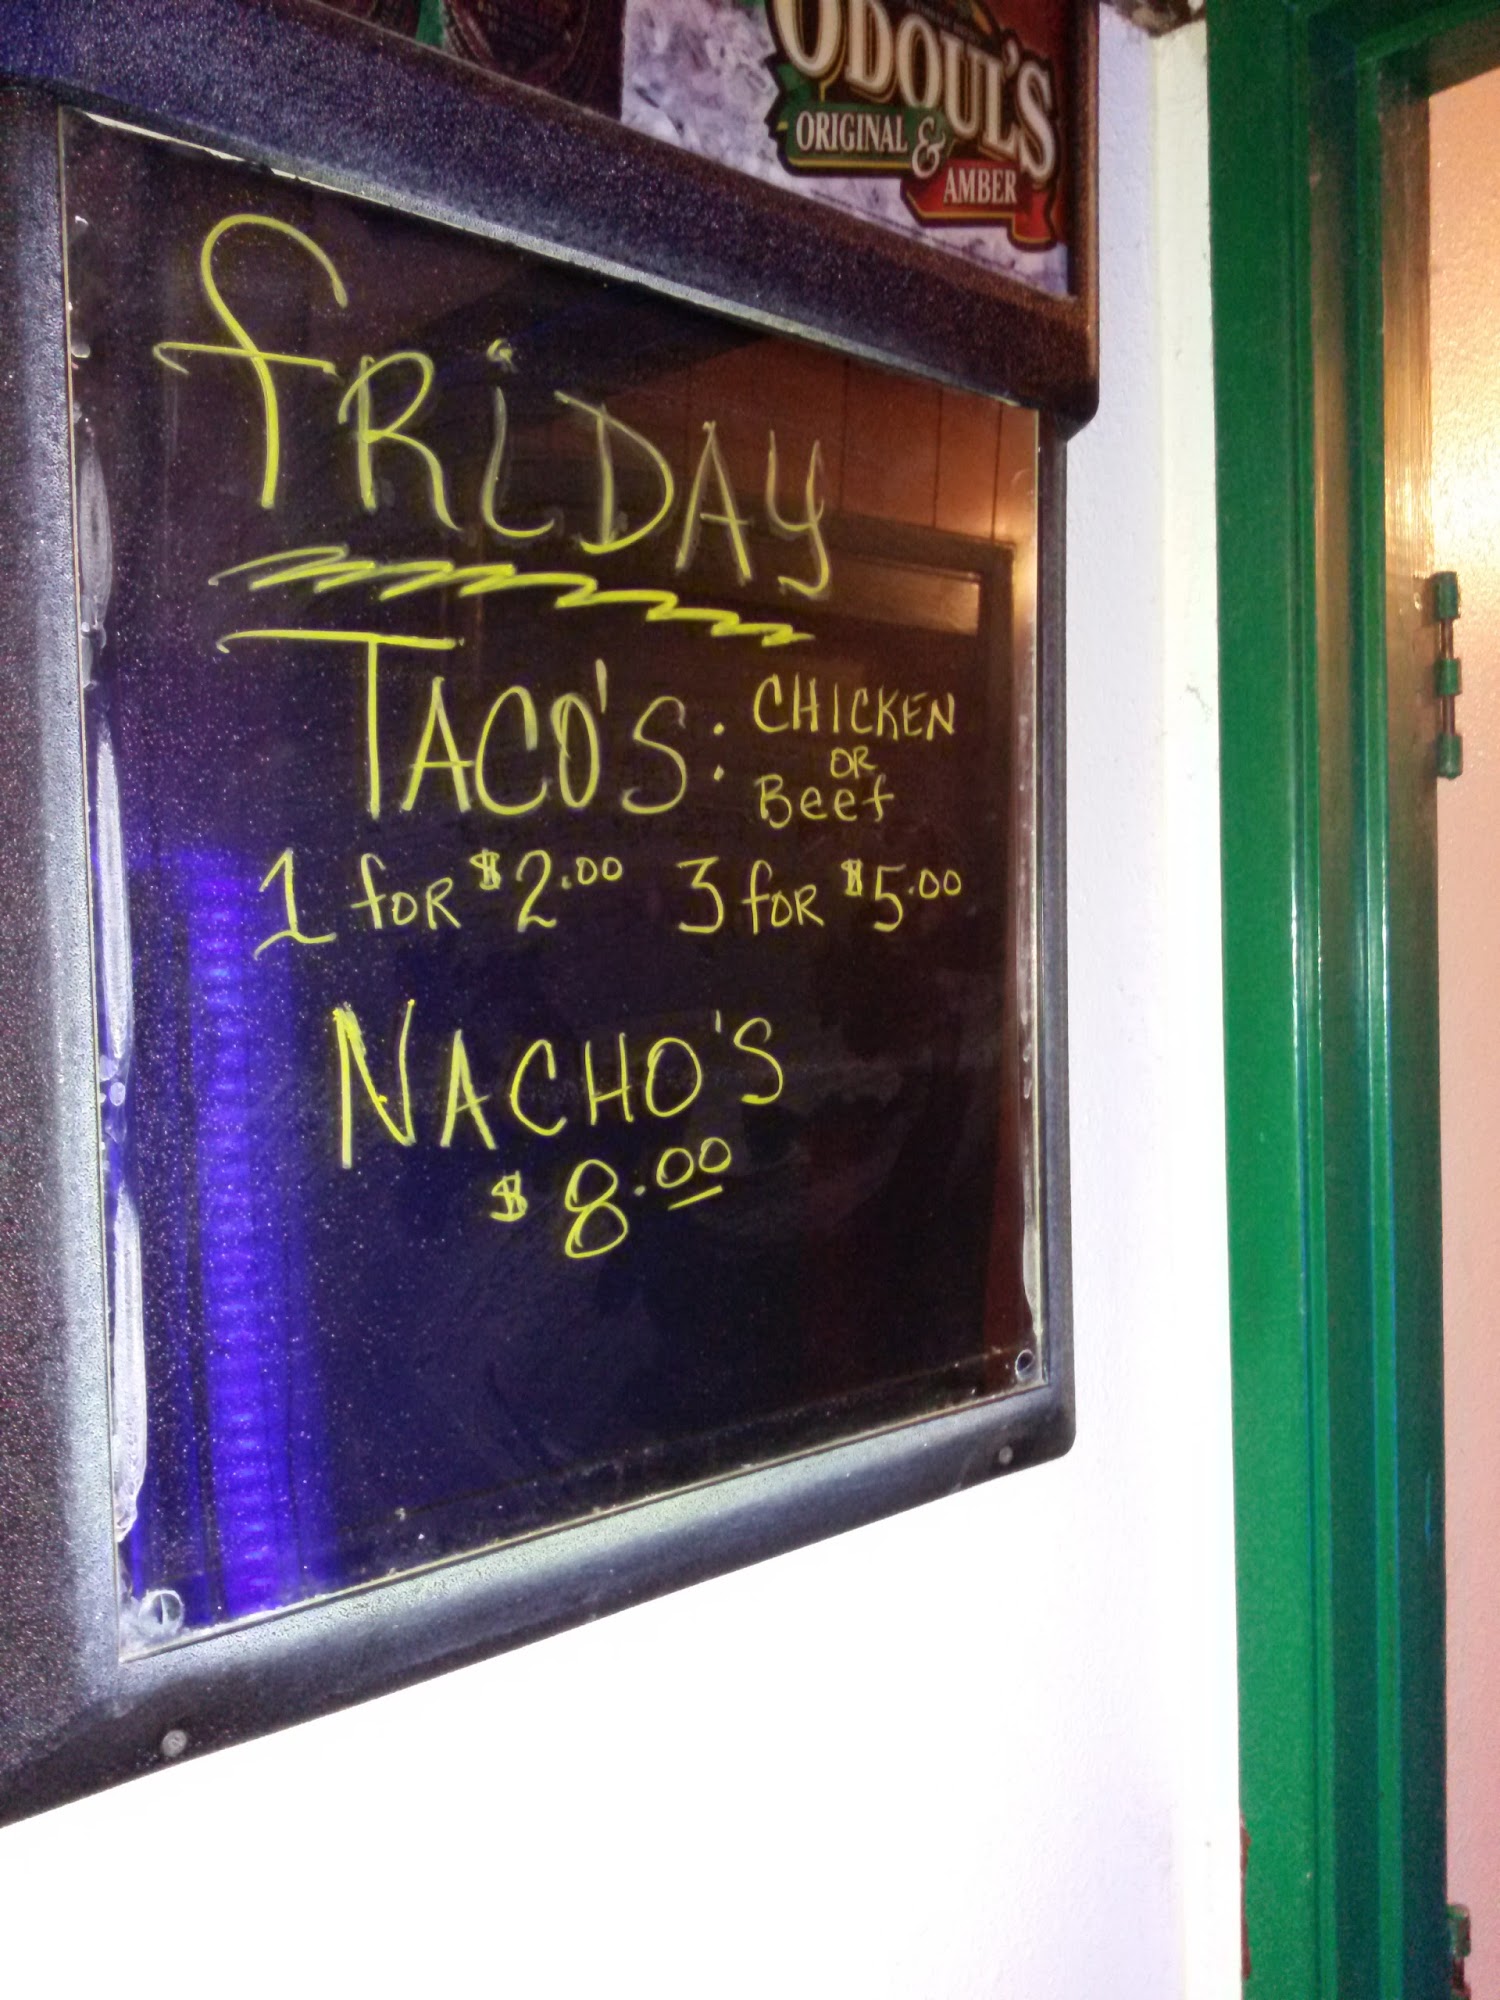 O'DOUL'S
ORIGINAL &
AMBER
FRiDAY
TACO'S: CHICKEN
OR
Beef
1 for $2.00 3 for $5.00
NACHO'S
$8.00